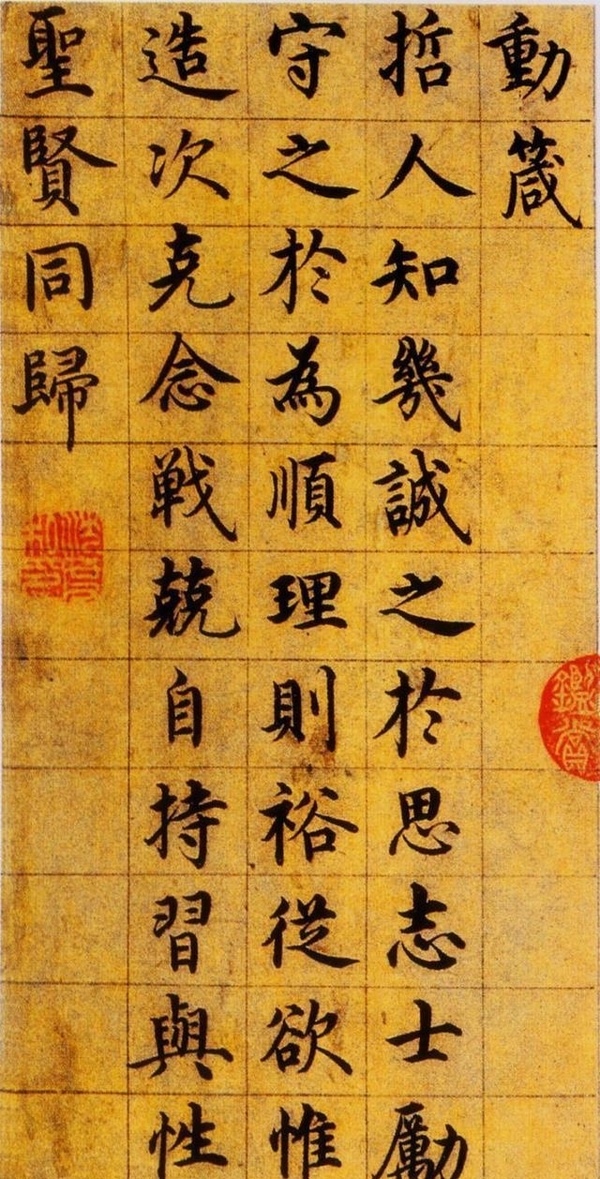 動箴
哲人知幾誠之於思志士勵
守之於為順理則裕從欲惟
造次克念戰兢自持習與性
聖賢同歸